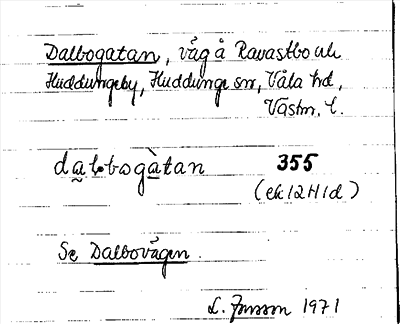 Dalbogatan, väg å Ravastbo och
Huddungeby, Huddunge sn, Våla hd,
Västm. l.
dalbogàtan 355
(ek 12H1d)
Se Dalbovägen.
L. Jonsson 1971